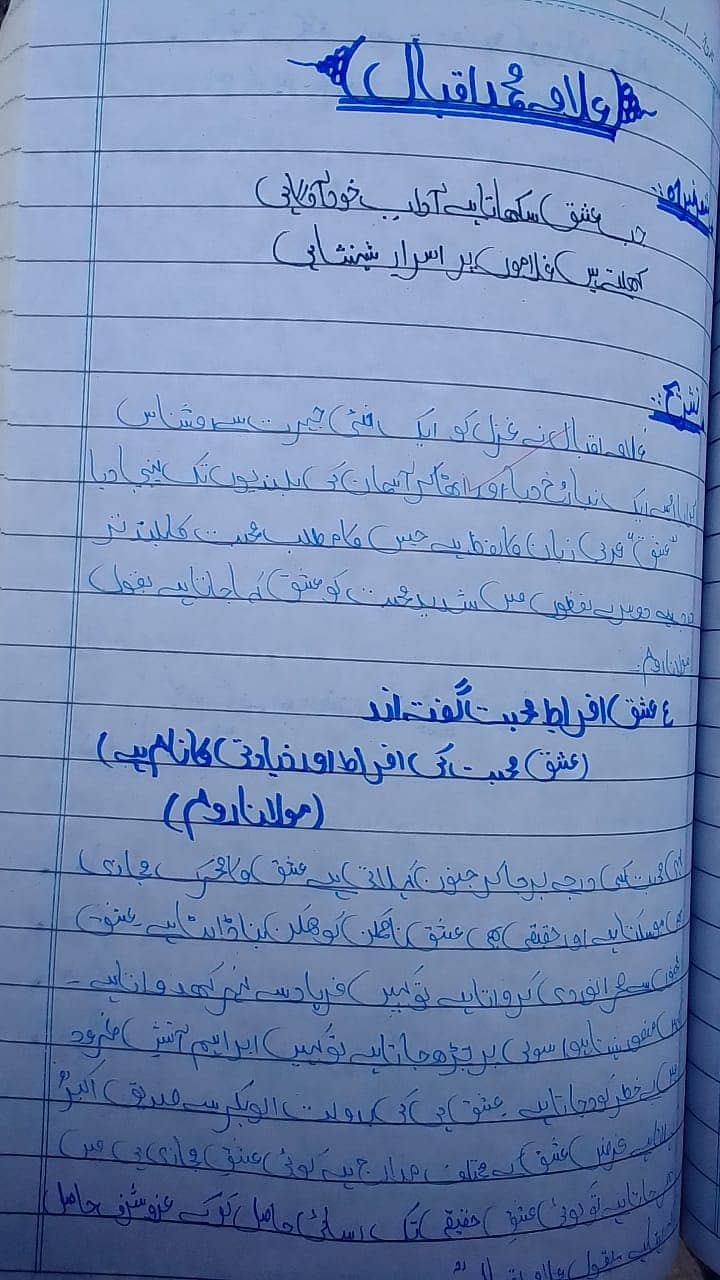 (علامہ محمد اقبال)
شعر نمبر 1:
جب عشق سکھاتا ہے آداب خود آگاہی
کھلتے ہیں غلاموں پر اسرار شہنشاہی
تشریح:
علامہ اقبال نے غزل کو ایک نئی جہت سے روشناس
کرایا اسے ایک نیا رخ دیا اور اٹھا کر آسمان کی بلندیوں تک پہنچا دیا
"عشق" عربی زبان کا لفظ ہے جس کا مطلب محبت کا بلند تر
درجہ ہے دوسرے لفظوں میں شدید محبت کو عشق کہا جاتا ہے بقول
مولانا روم:
ع عشق افراطِ محبت گفتہ اند
(عشق محبت کی افراط اور زیادتی کا نام ہے)
(مولانا روم)
محبت کسی درجے پر جا کر جنون کہلاتی ہے عشق کا محرک مجازی
بھی ہو سکتا ہے اور حقیقی بھی عشق ناممکن کو ممکن بنا ڈالتا ہے عشق
سے صحرا نوردی کرواتا ہے تو کہیں فرہاد سے نہر کھدواتا ہے۔
کہیں منصور بنتا ہوا سولی پر چڑھ جاتا ہے تو کہیں ابراہیم آتشِ نمرود
میں بے خطر کود جاتا ہے عشق ہی کی بدولت ابوبکر سے صدیق اکبرؓ
غرض عشق کے مختلف مدارج ہیں کوئی عشق مجازی ہی میں
جاتا ہے تو کوئی عشق حقیقی تک رسائی حاصل کر کے عز و شرف حاصل
بقول علامہ اقبال: